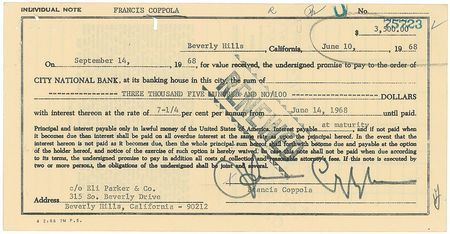 INDIVIDUAL NOTE FRANCIS COPPOLA
No. 25223
$ 3,500.00
Beverly Hills, California, June 10, 1968
On September 14, 1968, for value received, the undersigned promise to pay to the order of
CITY NATIONAL BANK, at its banking house in this city, the sum of
THREE THOUSAND FIVE HUNDRED AND NO/100 DOLLARS
with interest thereon at the rate of 7-1/4 per cent per annum from June 14, 1968 until paid.
Principal and interest payable only in lawful money of the United States of America. Interest payable at maturity and, if not paid when
it becomes due then interest shall be paid on all overdue interest at the same rate as the principal hereof. In the event that
interest hereon is not paid as it becomes due, then the whole principal sum hereof shall become due and payable at the option
of the holder hereof, and notice of the exercise of such option is hereby waived. If this note shall not be paid when due according
to its terms, the undersigned promise to pay in addition all costs of collection and attorney's fees. If this note is executed by
two or more persons, the obligations of the undersigned shall be joint and several.
RENEWED
Francis Coppola
c/o Eli Parker & Co.
315 So. Beverly Drive
Beverly Hills, California - 90212